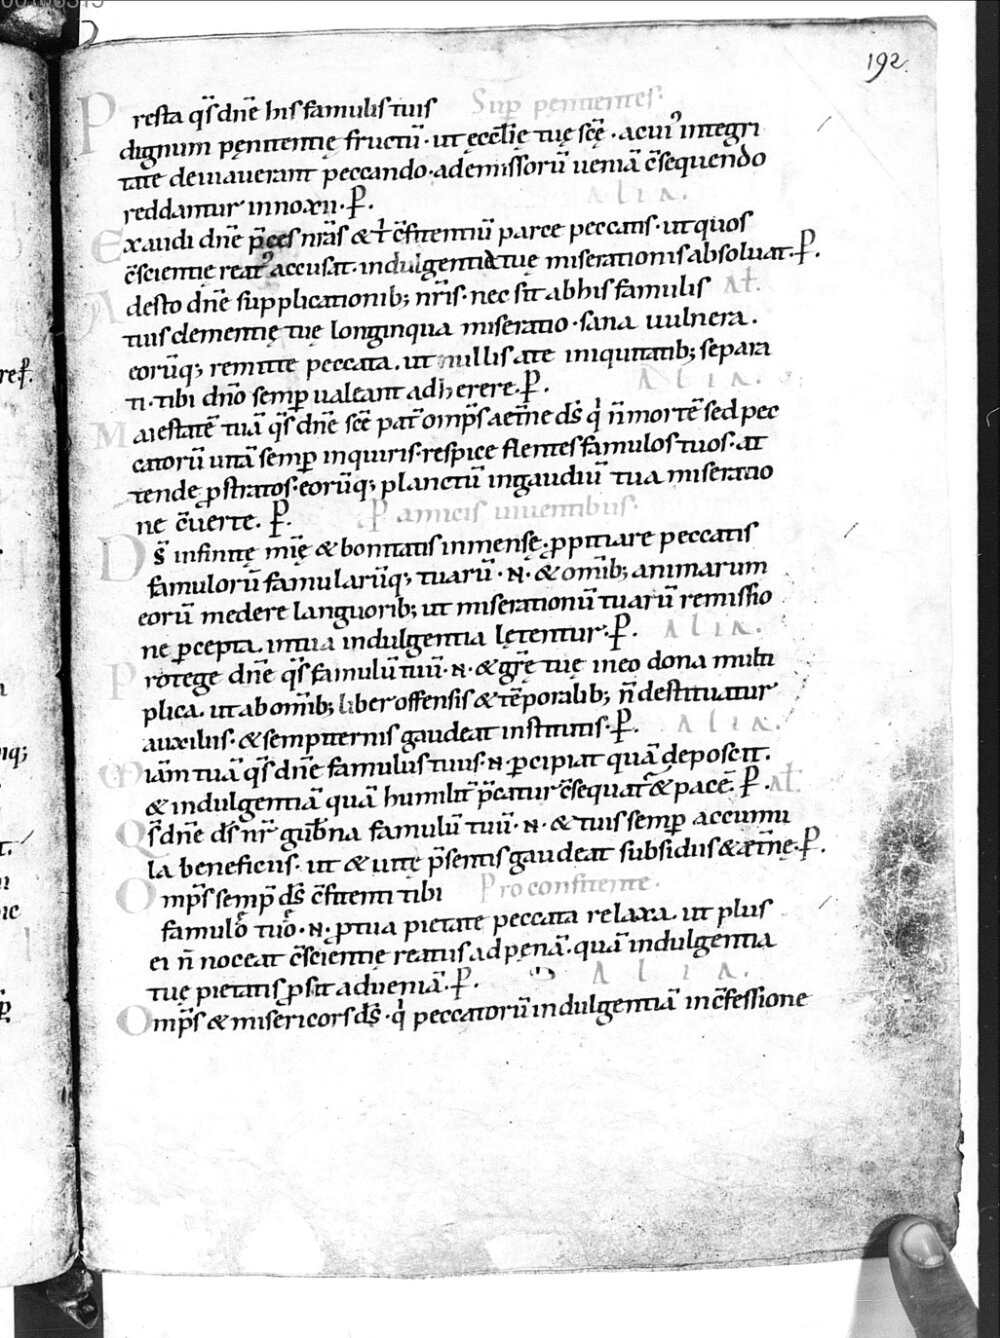 192.
Presta q̄s dn̄e his famulis tuis Sup penitentes:
dignum pęnitentię fructū· ut ęcclīę tuę scę̄· a cui᾿ integri
tate deuiauerant peccando· admissorū ueniā c̄sequendo
reddantur innoxii· P̲. Alia.
Exaudi dn̄e p̄ces nrās & t̄ c̄fitentiū parce peccatis· ut quos
c̄scientię reat᾿ accusat· indulgentia tuę miserationis absoluat· P̲.
Adesto dn̄e supplicationib; nr̄is· nec sit ab his famulis Al̄.
tuis clementię tuę longinqua miseratio· sana uulnera.
eorūq; remitte peccata. ut nullis a te iniquitatib; separa
ti· tibi dn̄o semp̲ ualeant adherere· P̲. Alia.
Maiestatē tuā q̄s dn̄e scē pat̄ omp̄s aetn̄e ds̄ q̍ n̄ mortē sed pec
catorū uitā semp̲ inquiris· respice flentes famulos tuos· at
tende p̲stratos· eorūq; planctū in gaudiū tua miseratio
ne c̄uerte. P̲. P̲ amicis uiuentibus.
Ds̄ infinitę mīę & bonitatis inmensę· p̲pitiare peccatis
famulorū famularūq; tuarū· N· & om̄ib; animarum
eorū medere languorib; ut miserationū tuarū remissio
ne p̲cepta. in tua indulgentia lętentur· P̲. Alia.
Protege dn̄e q̄s famulū tuū· N· & gr̄ę tuę in eo dona multi
plica. ut ab om̄ib; liber offensis & tēporalib; n̄ destituatur
auxiliis· & sempiternis gaudeat institutis· P̲. Alia.
Miām tuā q̄s dn̄e famulus tuus· N· p̲cipiat quā deposcit.
& indulgentiā quā humilit̄ p̄catur c̄sequat̄ & pacē· P̲. Al̄
Q̄s dn̄e ds̄ nr̄ gub̄na famulū tuū· N· & tuis semp̲ accumu
la beneficiis· ut & uitę p̄sentis gaudeat subsidiis & ætn̄ę· P̲.
Omp̄s semp̲ ds̄ c̄fitenti tibi Pro confitente.
famulo tuo· N· p̲ tua pietate peccata relaxa. ut plus
ei n̄ noceat c̄scientię reatus ad pęnā. quā indulgentia
tuę pietatis p̲sit ad ueniā· P̲. Alia.
Omp̄s & misericors ds̄· q̍ peccatorū indulgentiā in c̄fessione